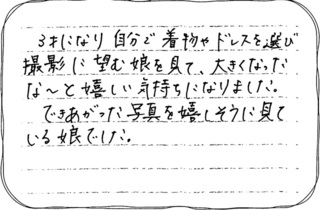 3才になり自分で着物やドレスを選び
撮影に望む娘を見て、大きくなった
な〜と嬉しい気持ちになりました。
できあがった写真を嬉しそうに見て
いる娘でした。